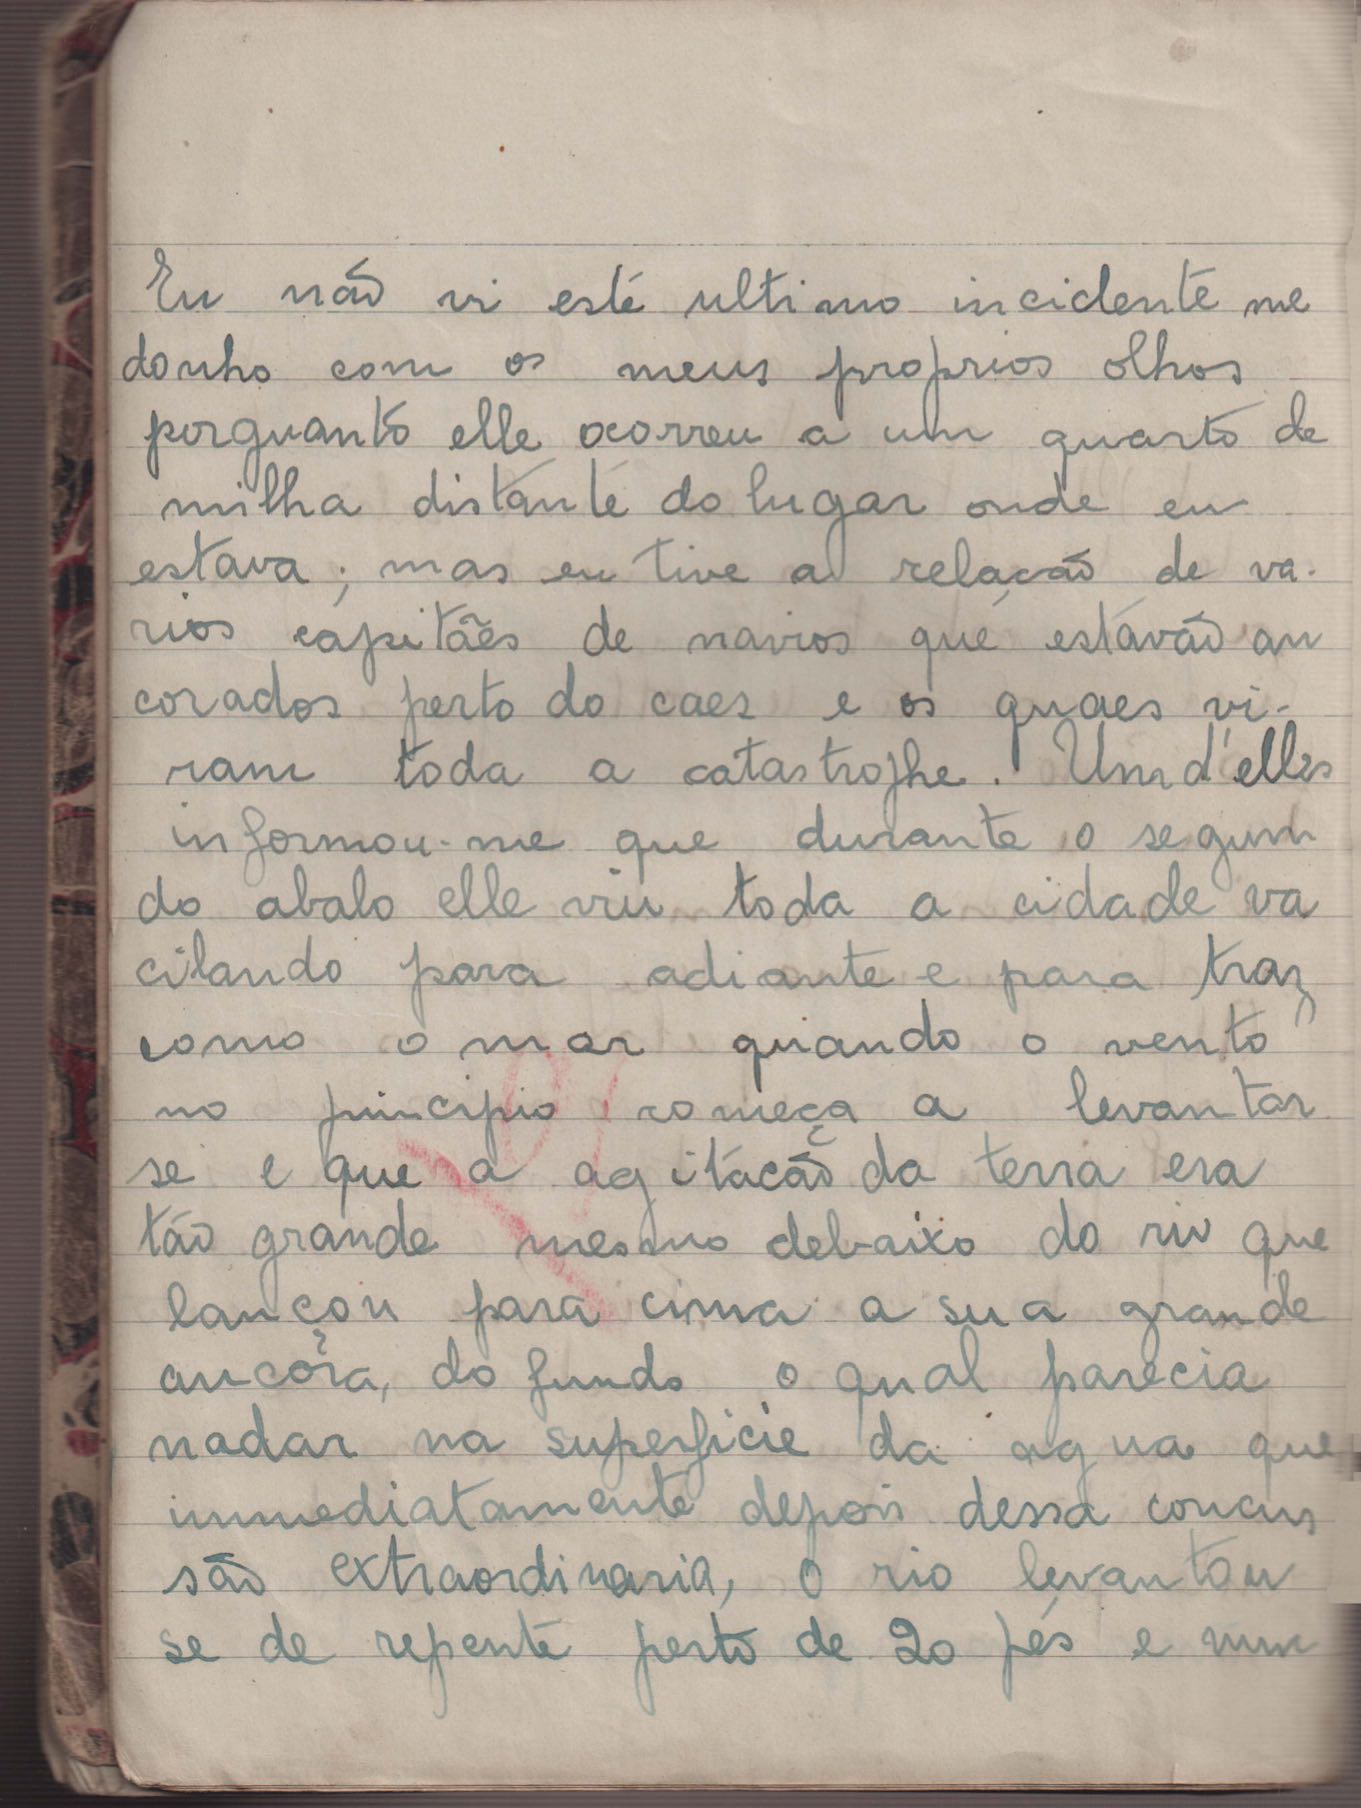 Eu não vi este ultimo incidente me
donho com os meus proprios olhos
porquanto elle ocorreu a um quarto de
milha distante do lugar onde eu
estava; mas eu tive a relacão de va-
rios capitães de navios que estavão an
corados perto do caes e os quaes vi-
ram toda a catastrophe. Um d'elles
informou-me que durante o segun
do abalo elle viu toda a cidade va
cilando para adiante e para traz
como o mar quando o vento
no principio começa a levantar
se e que a agitação da terra era
tão grande mesmo debaixo do rio que
lançou para cima a sua grande
ancora, do fundo o qual parecia
nadar na superficie da agua que
immediatamente depois dessa concus
são extraordinaria, o rio levantou
se de repente perto de 20 pés e num